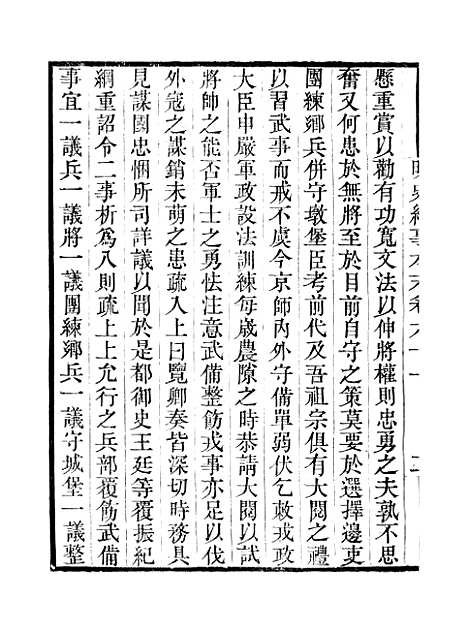 懸重賞以勸有功寬文法以伸將權則忠勇之夫孰不思
奮又何患於無將至於目前自守之策莫要於選擇邊吏
團練鄉兵併守墩堡臣考前代及吾祖宗俱有大閱之禮
以習武事而戒不虞今京師內外守備單弱伏乞敕戎政
大臣申嚴軍政設法訓練每歲農隙之時恭請大閱以試
將帥之能否軍士之勇怯注意武備整飭戎事亦足以伐
外寇之謀銷未萌之患疏入上曰覽卿奏皆深切時務具
見謀國忠悃所司詳議以聞於是都御史王廷等覆振紀
綱重詔令二事析爲八則疏上上允行之兵部覆飭武備
事宜一議兵一議將一議團練鄉兵一議守城堡一議整